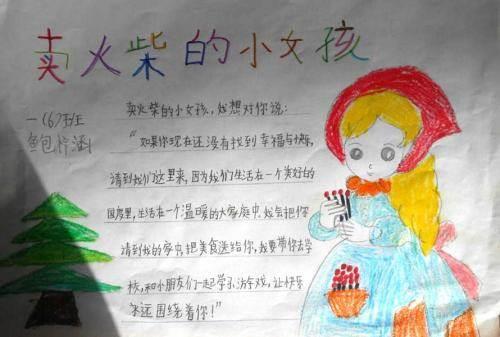 卖火柴的小女孩
一(6)班
鲍柠涵
卖火柴的小女孩,我想对你说:
“如果你现在还没有找到幸福与快乐,
请到我们这里来,因为我们生活在一个美好的
国度里,生活在一个温暖的大家庭中.我会把你
请到我的家中,把美食送给你,我要带你去学
校,和小朋友们一起学习,游戏,让快乐
永远围绕着你!”